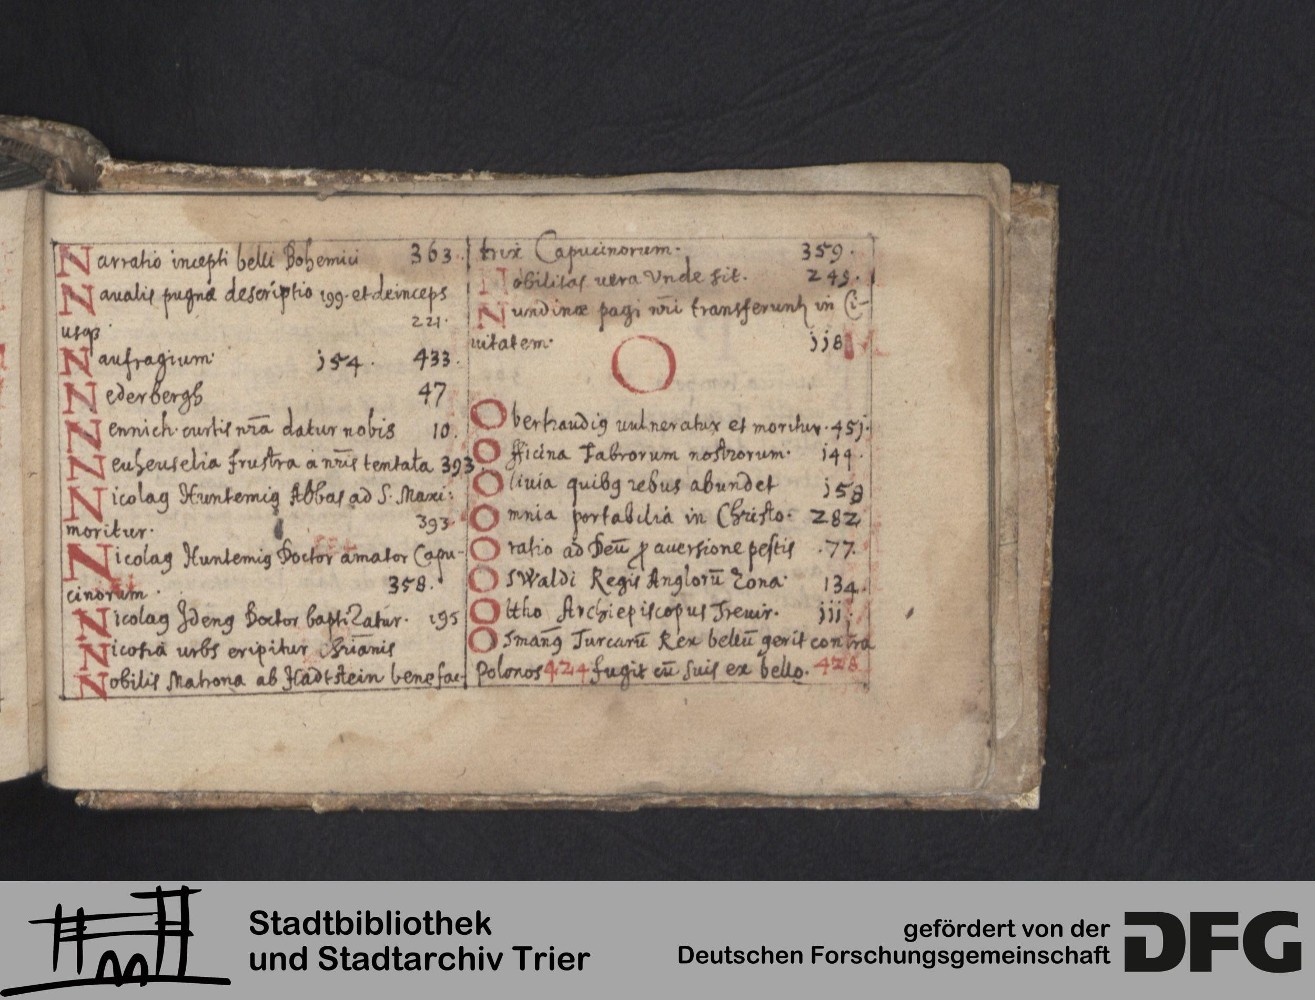 Narratio incepti belli Bohemici 363.
Naualis pugnæ descriptio 199. et deinceps
usqꝫ 221.
Naufragium. 154. 433.
Nederbergh 47
Nennich. curtis nr̄a datur nobis 10.
Neuheuselia frustra a nr̄is tentata 393
Nicolaꝰ Huntemiꝰ Abbas ad S. Maxi:
moritur. 393.
Nicolaꝰ Huntemiꝰ Doctor amator Capu-
cinorum. 358.
Nicolaꝰ Jdenꝰ Doctor baptizatur. 195
Nicosia urbs eripitur Chr̄ianis
Nobilis Matrona ab Hadtstein benefac-
trix Capucinorum. 359.
Nobilitas uera Vnde sit. 249.
Nundinæ pagi nr̄i transferunt in Ci-
uitatem. jj8
O
Obertraudiꝰ uulneratur et moritur. 451.
Officina Fabrorum nostrorum. 144.
Oliuia quibꝰ rebus abundet j58
Omnia portabilia in Christo. 282
Oratio ad Deū ꝓ auersione pestis .77.
OSWaldi Regis Anglorū Zona. 134.
Ottho Archiepiscopus Treuir. jjj
Osmanꝰ Turcarū Rex bellū gerit contra
Polonos 424 fugit cū suis ex bello. 428
Stadtbibliothek
und Stadtarchiv Trier
gefördert von der
Deutschen Forschungsgemeinschaft
DFG